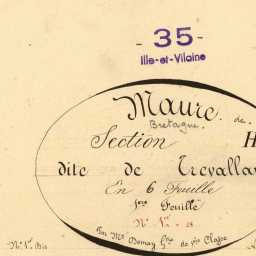 - 35 -
Ille-et-Vilaine
Maure. de
Bretagne.
Section H
dite de Trevallar
En 6 Feuille
1ère Feuille
N° V°
Par Mr
de 1ère Classe
N° V° Bis